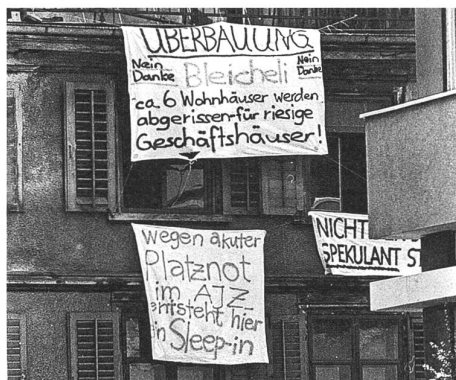 ÜBERBAUUNG
Nein Danke Bleicheli Nein Danke
ca. 6 Wohnhäuser werden
abgerissen für riesige
Geschäftshäuser!
wegen akuter
Platznot
im AJZ
entsteht hier
ein Sleep-in
NICHT
SPEKULANT ST